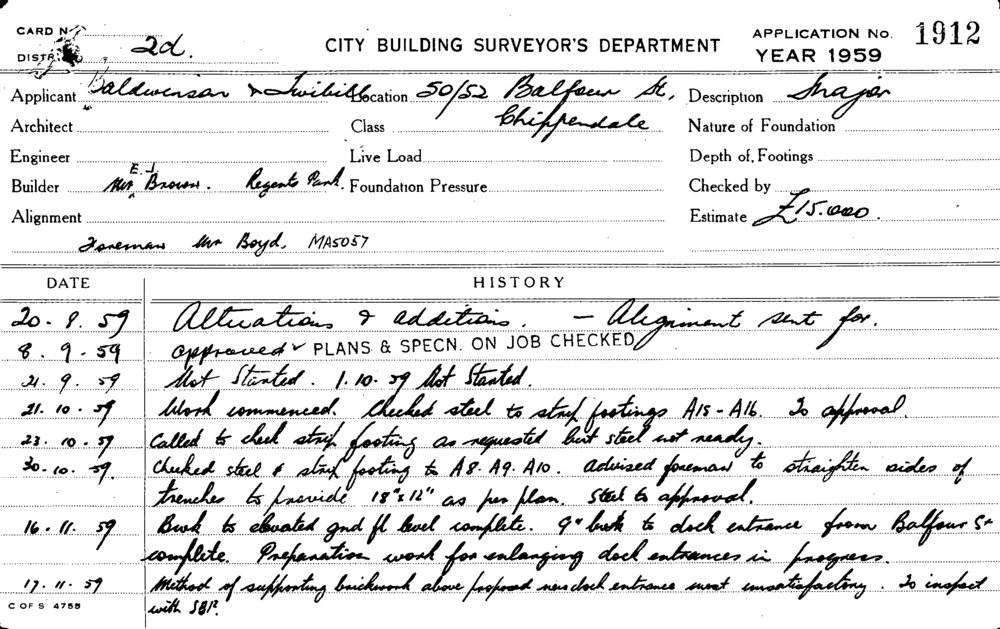 CARD No 2d. CITY BUILDING SURVEYOR'S DEPARTMENT APPLICATION No. 1912
DISTR. YEAR 1959
Applicant Baldwinson & Twibill Location 50/52 Balfour St, Description
Architect Class Chippendale Nature of Foundation
Engineer Live Load Depth of Footings
Builder Mr E.J. Brown. Regents Park. Foundation Pressure Checked by
Alignment Estimate £15.000.
Foreman Mr Boyd. MA5057
DATE HISTORY
20. 8. 59 Alterations & additions. - Alignment sent for.
8. 9. 59 approved PLANS & SPECN. ON JOB CHECKED
21. 9. 59 Not Started. 1.10.59 Not Started.
21. 10. 59 Work commenced. Checked steel to strip footings A15-A16. To approval.
23. 10. 59 Called to check strip footing as requested but steel not ready.
30. 10. 59. Checked steel & strip footing to A8. A9. A10. advised foreman to straighten sides of
trenches to provide 18"x12" as per plan. Steel to approval.
16. 11. 59 Bwk to elevated gnd fl level complete. 9" bwk to dock entrance from Balfour St
complete. Preparation work for enlarging dock entrances in progress.
17. 11. 59 Method of supporting brickwork above proposed new dock entrance most unsatisfactory. To inspect
C OF S 4755 with SBI.